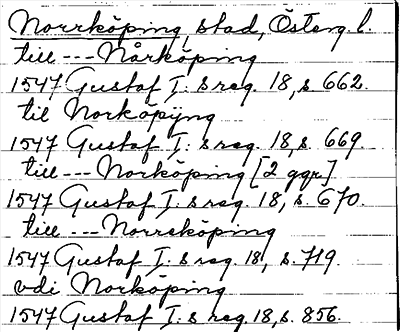 Norrköping, stad, Österg. l.
till --- Nårköping
1547 Gustaf I:s reg. 18, s. 662.
til Norköpijng
1547 Gustaf I:s reg. 18, s. 669
till --- Norköping [2 ggr]
1547 Gustaf I:s reg. 18, s. 670.
till --- Norreköping
1547 Gustaf I:s reg. 18, s. 719.
vdi Norköping
1547 Gustaf I:s reg. 18, s. 856.